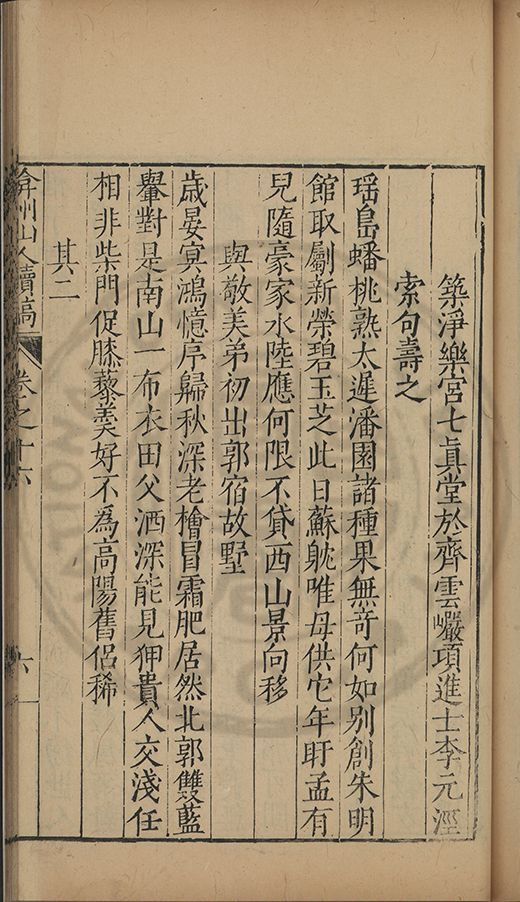 築淨樂宮七眞堂於齊雲巖項進士李元涇
索句壽之
瑶島蟠桃熟太遲潘園諸種果無竒何如别創朱明
館取劚新榮碧玉芝此日蘇躭唯母供它年盱孟有
兒隨豪家水陸應何限不貸西山景向移
與敬美弟初出郭宿故墅
歳晏㝠鴻憶序歸秋深老檜冒霜肥居然北郭雙藍
轝對是南山一布衣田父洒深能見狎貴人交淺任
相非柴門促膝藜羹好不為高陽舊侣稀
其二
弇州山人續稿
卷之十六
六